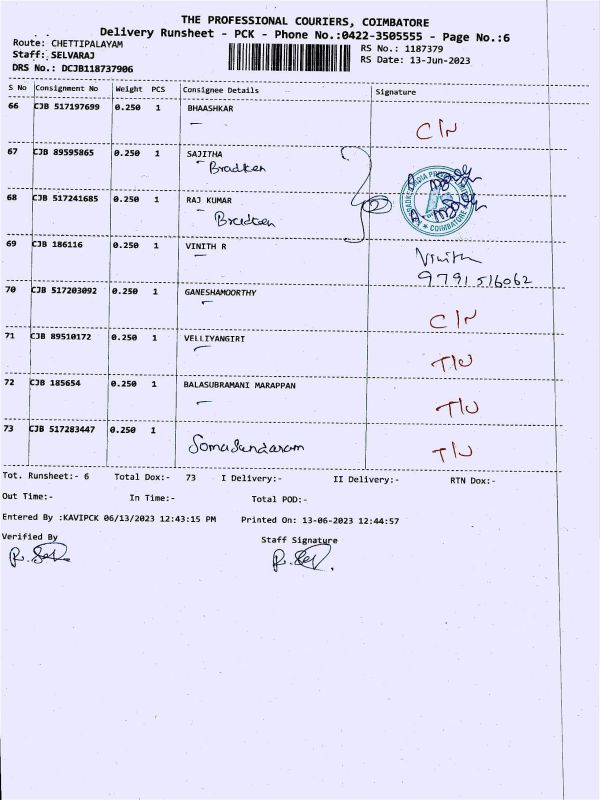 THE PROFESSIONAL COURIERS, COIMBATORE
Delivery Runsheet - PCK - Phone No.:0422-3505555 - Page No.:6
Route: CHETTIPALAYAM
RS No.: 1187379
Staff: SELVARAJ
RS Date: 13-Jun-2023
DRS No.: DCJB118737906
S No Consignment No Weight PCS Consignee Details Signature
66 CJB 517197699 0.250 1 BHAASHKAR
C/N
67 CJB 89595865 0.250 1 SAJITHA
Bradken
68 CJB 517241685 0.250 1 RAJ KUMAR
Bradken
COIMBATORE
69 CJB 186116 0.250 1 VINITH R
Vinith
9791516062
70 CJB 517203092 0.250 1 GANESHAMOORTHY
C/N
71 CJB 89510172 0.250 1 VELLIYANGIRI
T/U
72 CJB 185654 0.250 1 BALASUBRAMANI MARAPPAN
T/U
73 CJB 517283447 0.250 1
Somasundaram
T/U
Tot. Runsheet:- 6 Total Dox:- 73 I Delivery:- II Delivery:- RTN Dox:-
Out Time:- In Time:- Total POD:-
Entered By :KAVIPCK 06/13/2023 12:43:15 PM Printed On: 13-06-2023 12:44:57
Verified By Staff Signature